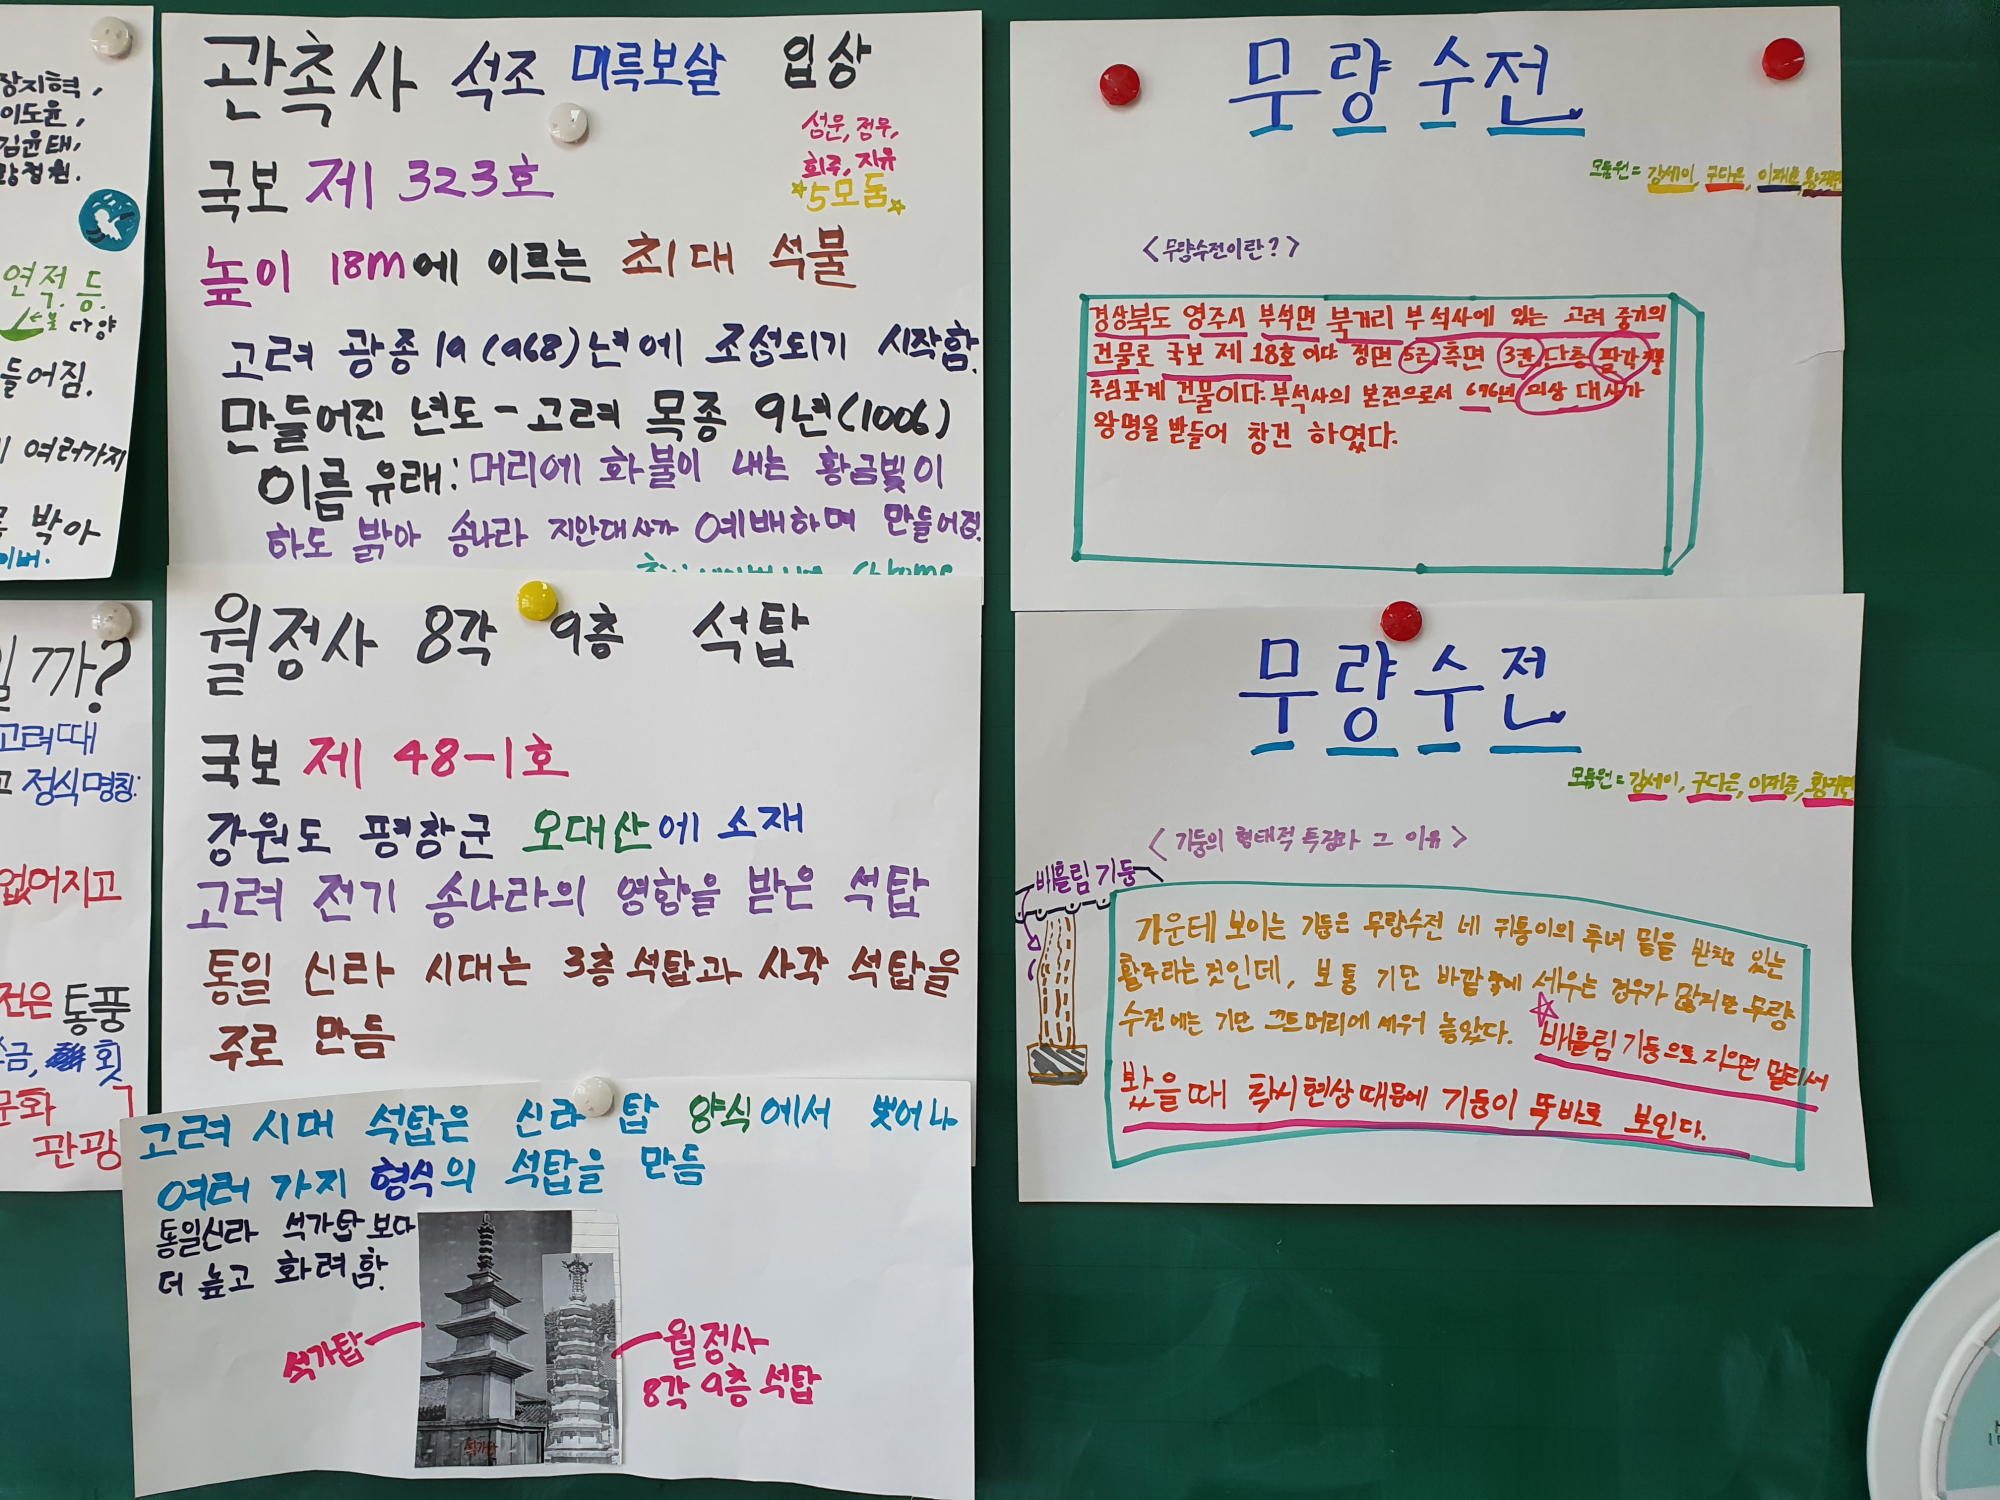 장지혁,
이도윤,
김윤태,
정원.
연적. 등.
다양
들어짐.
여러가지
박아
이버.
까?
고려때
고 정식명칭:
없어지고
전은 통풍
금, 횟
문화
관광
관촉사 석조 미륵보살 입상
섬운, 점우,
회주, 지유
5모둠
국보 제 323호
높이 18m에 이르는 최대 석물
고려 광종 19 (968)년에 조성되기 시작함.
만들어진 년도 - 고려 목종 9년(1006)
이름 유래: 머리에 화불이 내는 황금빛이
하도 밝아 송나라 지안대사가 예배하며 만들어짐.
Chrome
월정사 8각 9층 석탑
국보 제 48-1호
강원도 평창군 오대산에 소재
고려 전기 송나라의 영향을 받은 석탑
통일 신라 시대는 3층 석탑과 사각 석탑을
주로 만듬
고려 시대 석탑은 신라 탑 양식에서 벗어나
여러 가지 형식의 석탑을 만듬
통일신라 석가탑 보다
더 높고 화려함.
석가탑
월정사
8각 9층 석탑
무량수전
모둠원 = 강세이, 구다은, 이재준, 황재민
<무량수전이란?>
경상북도 영주시 부석면 북지리 부석사에 있는 고려 중기의
건물로 국보 제 18호 이다 정면 5칸, 측면 3칸, 단층 팔작지붕
주심포계 건물이다. 부석사의 본전으로서 676년 의상 대사가
왕명을 받들어 창건 하였다.
무량수전
모둠원 = 강세이, 구다은, 이재준, 황재민
<기둥의 형태적 특징과 그 이유>
배흘림 기둥
가운테 보이는 기둥은 무량수전 네 귀퉁이의 추녀 밑을 받치고 있는
활주라는 것인데, 보통 기단 바깥 쪽에 세우는 경우가 많지만 무량
수전에는 기단 끄트머리에 세워 놓았다. 배흘림 기둥으로 지으면 멀리서
봤을 때 착시현상 때문에 기둥이 똑바로 보인다.